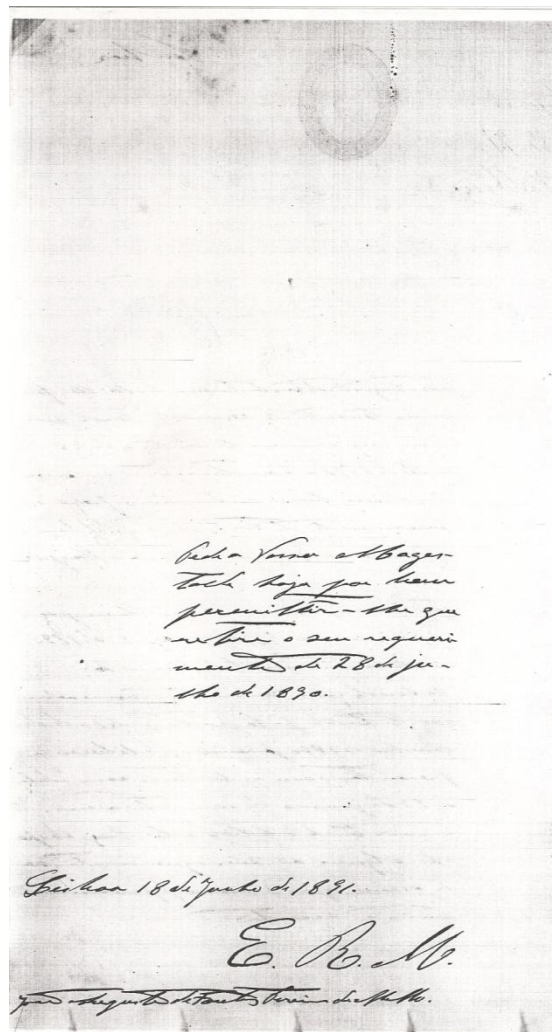 Pede a Vossa Mages-
tade haja por bem
permittir-lhe que
retire o seu requeri
mento de 28 de ju-
lho de 1890.
Lisboa 18 de Junho de 1891.
E. R. M.
Augusto de Pereira de Mello.